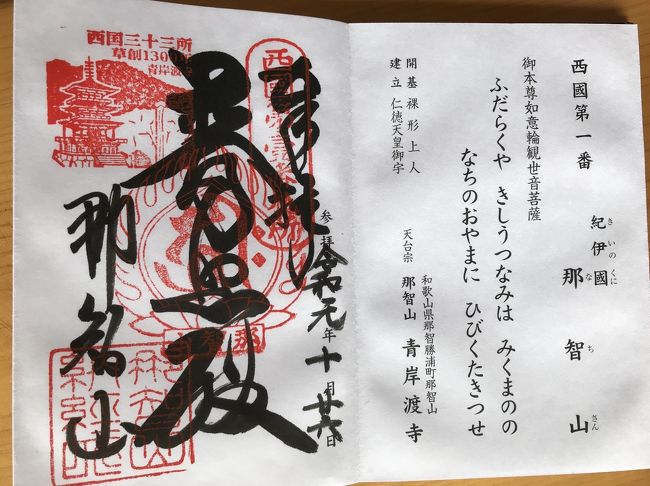 西國第一番
紀伊國 那智山
きいのくに なちさん
御本尊如意輪観世音菩薩
ふだらくや きしうつなみは みくまのの
なちのおやまに ひびくたきつせ
開基 裸形上人
建立 仁徳天皇御宇
天台宗 和歌山県那智勝浦町那智山
那智山 青岸渡寺
奉拝
参拝令和元年十月廿六日
普照殿
那智山
西国三十三所
草創130
青岸渡寺